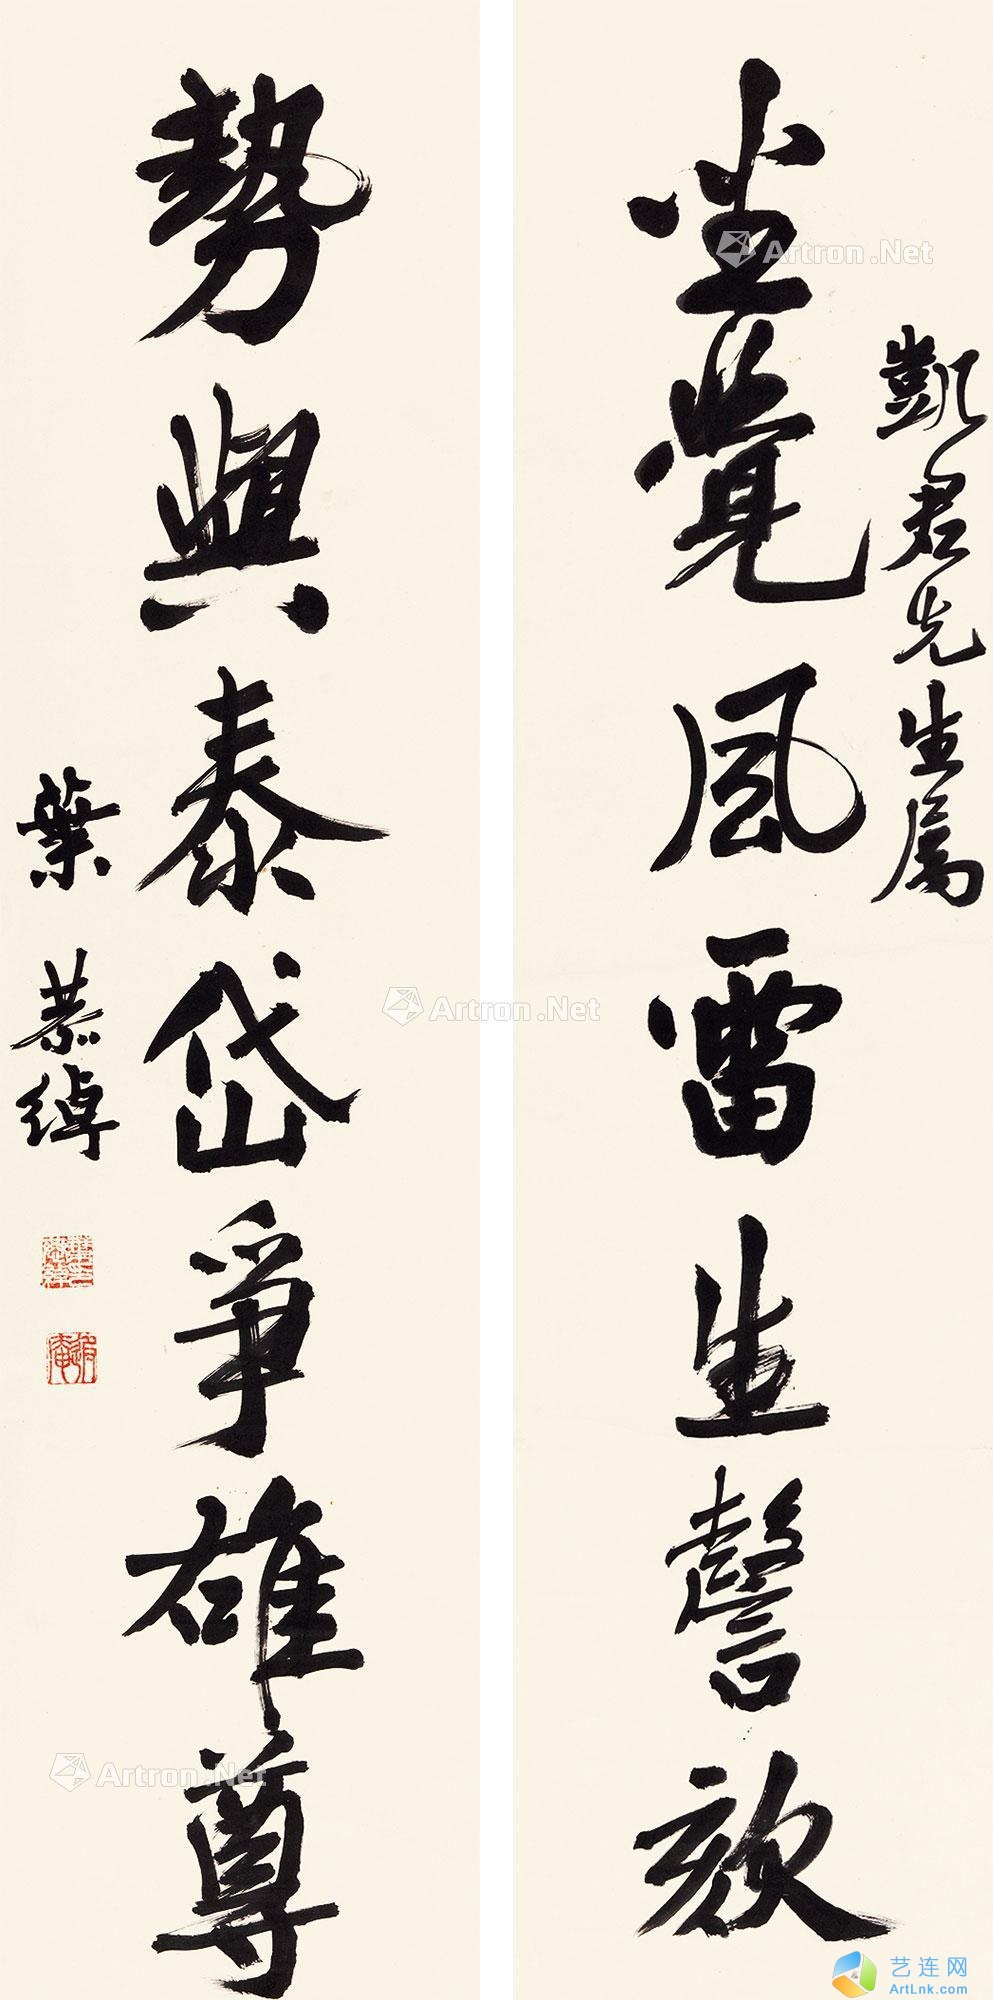 凱君先生属
坐覺風雷生謦欬
勢與泰岱爭雄尊
葉恭綽
Artron.Net
Artron.Net
Artron.Net
艺连网
ArtLnk.com